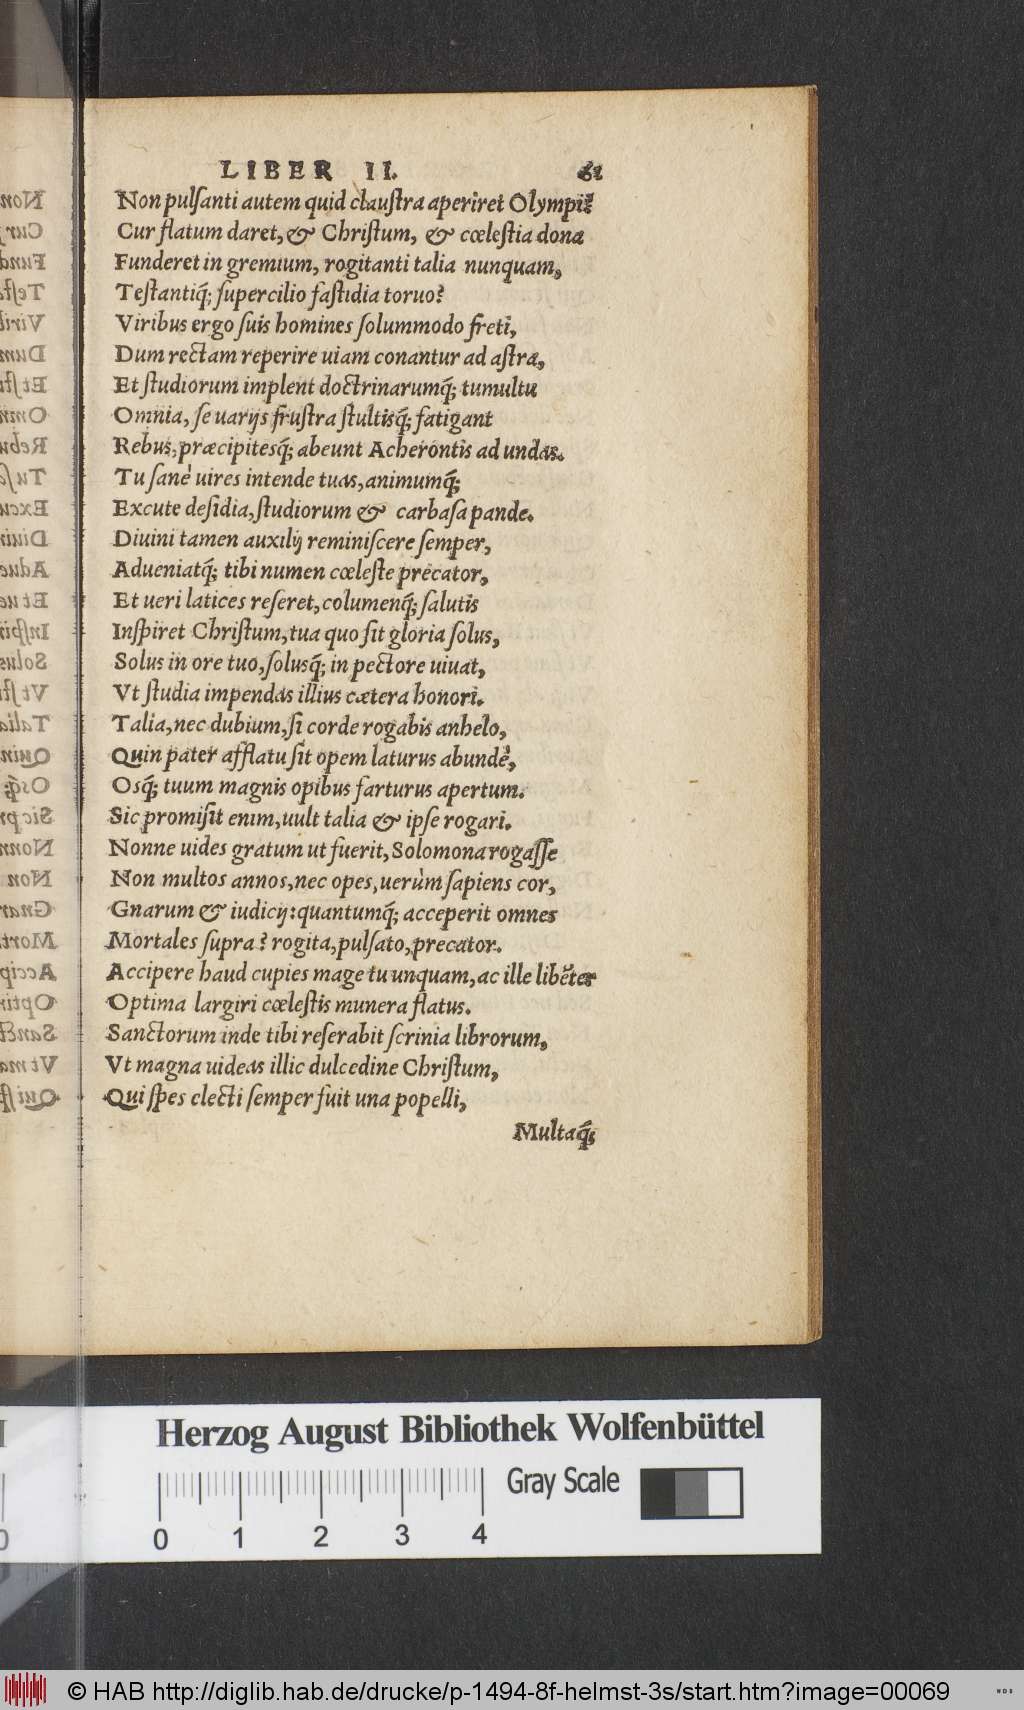 LIBER II. 61
Non pulſanti autem quid clauſtra aperiret Olympi?
Cur flatum daret, & Chriſtum, & cœleſtia dona
Funderet in gremium, rogitanti talia nunquam,
Teſtantiq́; ſupercilio faſtidia toruo?
Viribus ergo ſuis homines ſolummodo freti,
Dum rectam reperire uiam conantur ad aſtra,
Et ſtudiorum implent doctrinarumq́; tumultu
Omnia, ſe uarijs fruſtra ſtultisq́; fatigant
Rebus, præcipitesq́; abeunt Acherontis ad undas.
Tu ſanè uires intende tuas, animumq́;
Excute deſidia, ſtudiorum & carbaſa pande.
Diuini tamen auxilij reminiſcere ſemper,
Adueniatq́; tibi numen cœleſte precator,
Et ueri latices reſeret, columenq́; ſalutis
Inſpiret Chriſtum, tua quo ſit gloria ſolus,
Solus in ore tuo, ſolusq́; in pectore uiuat,
Vt ſtudia impendas illius cætera honori.
Talia, nec dubium, ſi corde rogabis anhelo,
Quin pater afflatu ſit opem laturus abundè,
Osq́; tuum magnis opibus farturus apertum.
Sic promiſit enim, uult talia & ipſe rogari.
Nonne uides gratum ut fuerit, Solomona rogaſſe
Non multos annos, nec opes, uerùm ſapiens cor,
Gnarum & iudicij: quantumq́; acceperit omnes
Mortales ſupra? rogita, pulſato, precator.
Accipere haud cupies mage tu unquam, ac ille libẽter
Optima largiri cœleſtis munera flatus.
Sanctorum inde tibi reſerabit ſcrinia librorum,
Vt magna uideas illic dulcedine Chriſtum,
Qui ſpes electi ſemper fuit una popelli,
Multaq́;
Herzog August Bibliothek Wolfenbüttel
0 1 2 3 4 Gray Scale
© HAB http://diglib.hab.de/drucke/p-1494-8f-helmst-3s/start.htm?image=00069